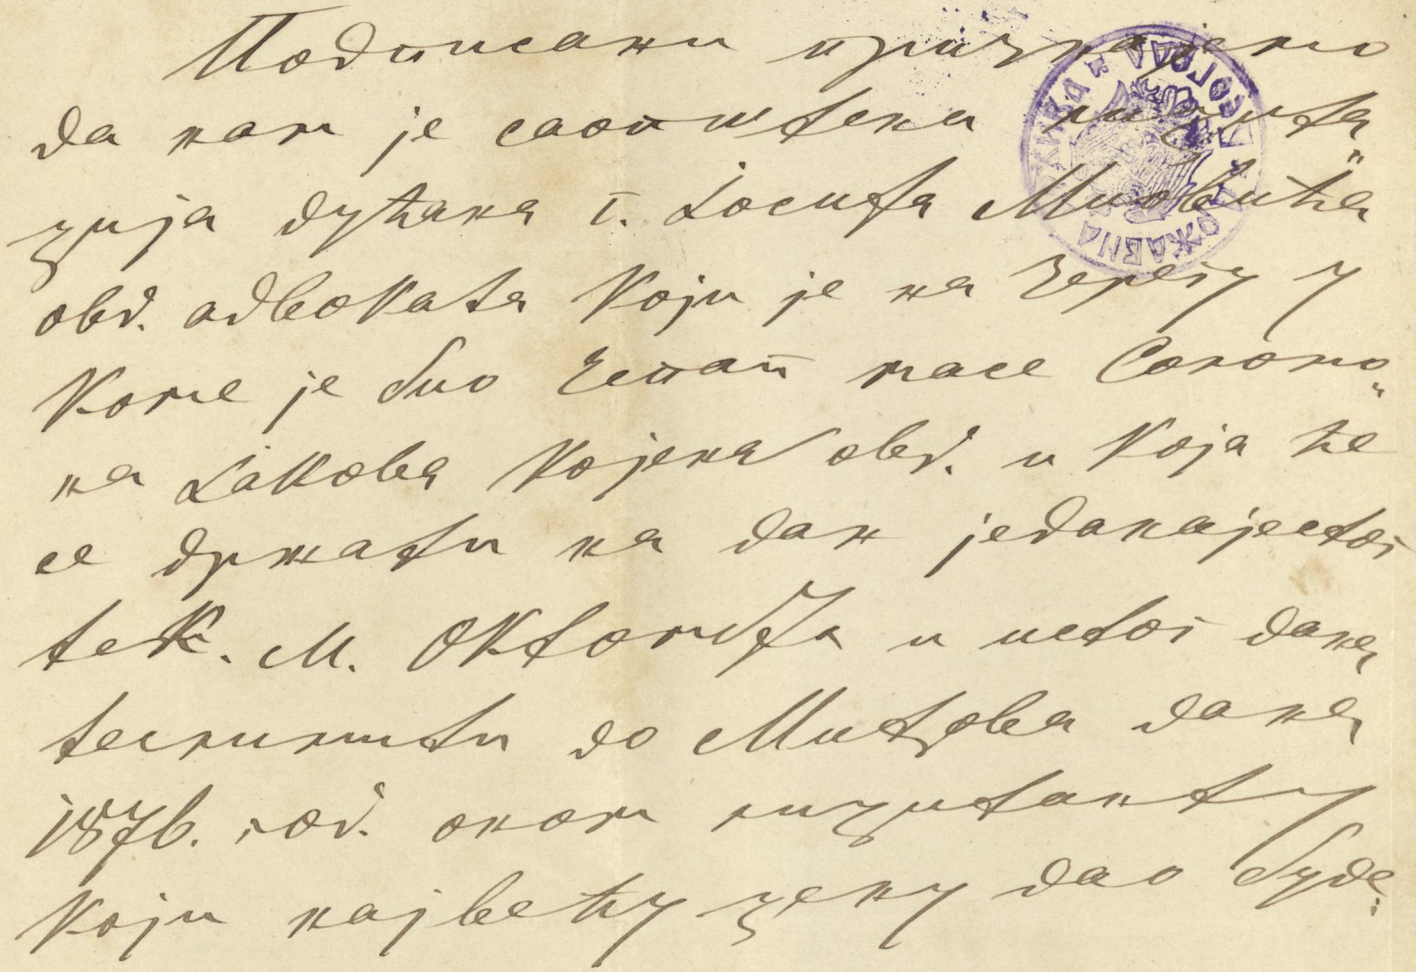 Подписани признајемо
да нам је саопштена лицита„
ција дућана г. Јосифа Миовића
овд. адвоката који је на Зереку у
коме је био Еспап масе Соломо„
на Јакова Којена овд. и која ће
се држати на дан једанајестог
тек. М. Октомвра и истог дана
до Митрова дана
1876. год. оном лицитанту
који највећу цену дао буде.
ДРЖАВНА АРХИВА БЕОГРАД